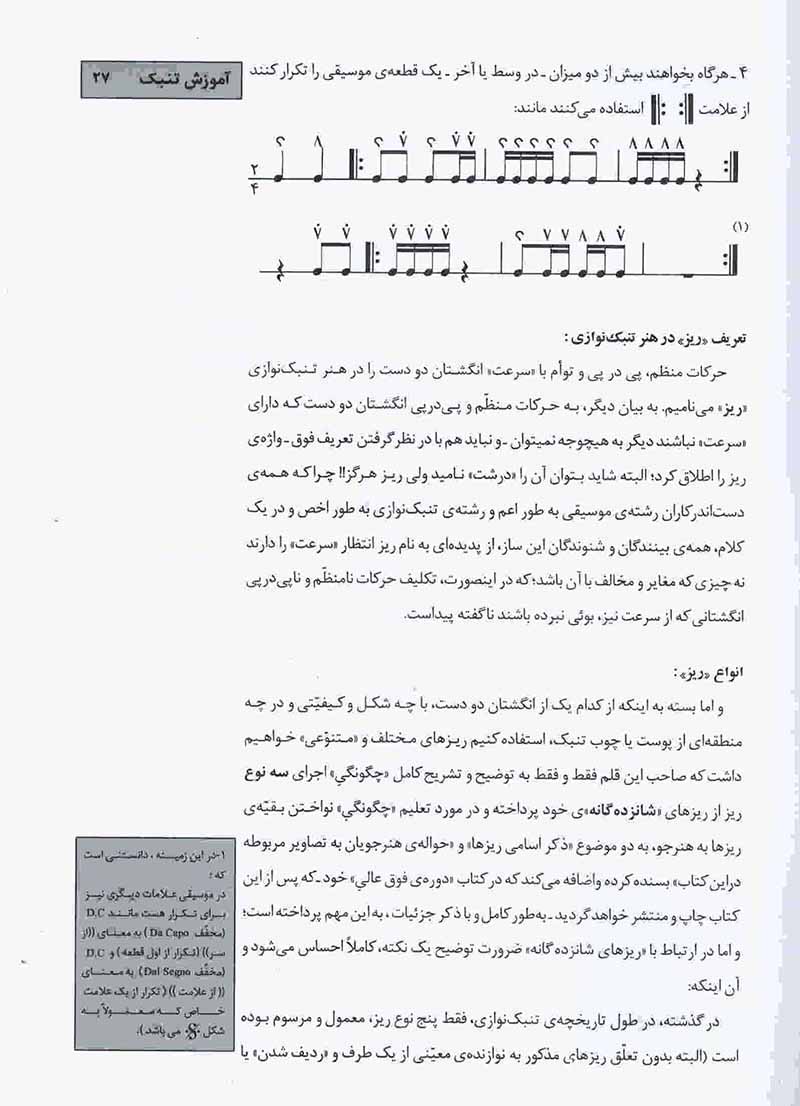 آموزش تنبک ۲۷
۴ ـ هرگاه بخواهند بیش از دو میزان ـ در وسط یا آخر ـ یک قطعه‌ی موسیقی را تکرار کنند
از علامت استفاده می‌کنند مانند:
۲
۴
(۱)
تعریف «ریز» در هنر تنبک‌نوازی:
حرکات منظم، پی در پی و توأم با «سرعت» انگشتان دو دست را در هنر تنبک‌نوازی
«ریز» می‌نامیم. به بیان دیگر، به حرکات منظّم و پی‌درپی انگشتان دو دست که دارای
«سرعت» نباشند دیگر به هیچوجه نمیتوان ـ و نباید هم با در نظر گرفتن تعریف فوق ـ واژه‌ی
ریز را اطلاق کرد؛ البته شاید بتوان آن را «درشت» نامید ولی ریز هرگز!! چرا که همه‌ی
دست‌اندرکاران رشته‌ی موسیقی به طور اعم و رشته‌ی تنبک‌نوازی به طور اخص و در یک
کلام، همه‌ی بینندگان و شنوندگان این ساز، از پدیده‌ای به نام ریز انتظار «سرعت» را دارند
نه چیزی که مغایر و مخالف با آن باشد؛ که در اینصورت، تکلیف حرکات نامنظّم و ناپی‌درپی
انگشتانی که از سرعت نیز، بوئی نبرده باشند ناگفته پیداست.
انواع «ریز»:
و اما بسته به اینکه از کدام یک از انگشتان دو دست، با چه شکل و کیفیّتی و در چه
منطقه‌ای از پوست یا چوب تنبک، استفاده کنیم ریزهای مختلف و «متنوّعی» خواهیم
داشت که صاحب این قلم فقط و فقط به توضیح و تشریح کامل «چگونگي» اجرای سه نوع
ریز از ریزهای «شانزده‌گانه»‌ی خود پرداخته و در مورد تعلیم «چگونگي» نواختن بقیّه‌ی
ریزها به هنرجو، به دو موضوع «ذکر اسامی ریزها» و «حواله‌ی هنرجویان به تصاویر مربوطه
دراین کتاب» بسنده کرده واضافه می‌کند که در کتاب «دوره‌ی فوق عالي» خود ـ که پس از این
کتاب چاپ و منتشر خواهد گردید ـ به‌طور کامل و با ذکر جزئیات، به این مهم پرداخته است؛
و اما در ارتباط با «ریزهای شانزده‌گانه» ضرورت توضیح یک نکته، کاملاً احساس می‌شود و
آن اینکه:
در گذشته، در طول تاریخچه‌ی تنبک‌نوازی، فقط پنج نوع ریز، معمول و مرسوم بوده
است (البته بدون تعلّق ریزهای مذکور به نوازنده‌ی معیّنی از یک طرف و «ردیف شدن» یا
۱-در این زمینه، دانستنی است
که:
در موسیقی علامات دیگری نیز
برای تکرار هست مانند D.C
(مخفّف Da Capo) به معنای ((از
سر)) (تکرار از اول قطعه) و D.C
(مخفّف Dal Segno) به معنای
((از علامت)) (تکرار از یک علامت
خاص که معمولاً به
شکل می باشد).